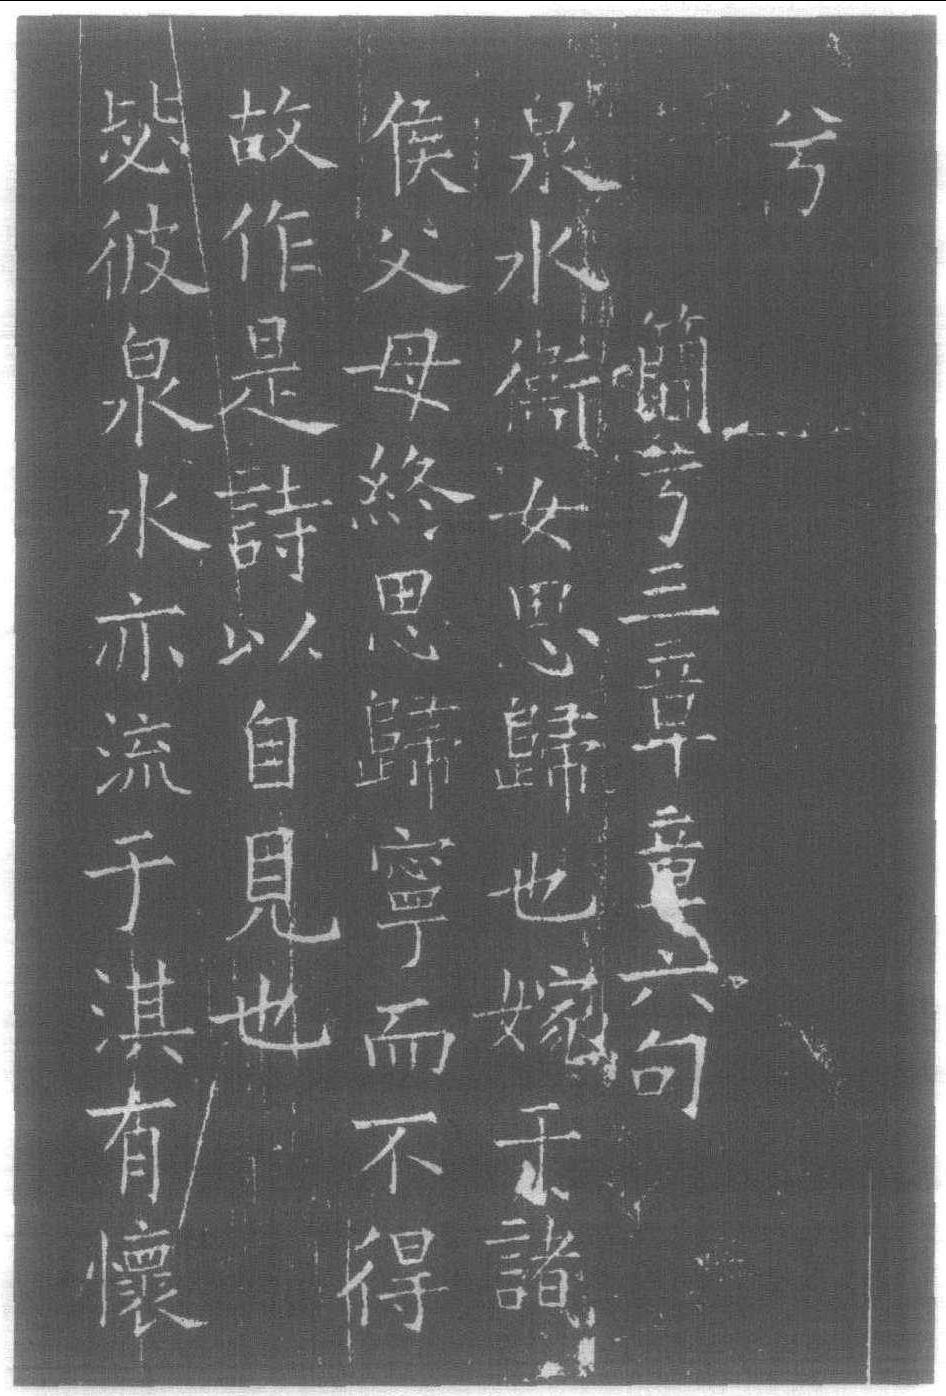 兮
簡兮三章章六句
泉水衛女思歸也嫁于諸
侯父母終思歸寧而不得
故作是詩以自見也
毖彼泉水亦流于淇有懷